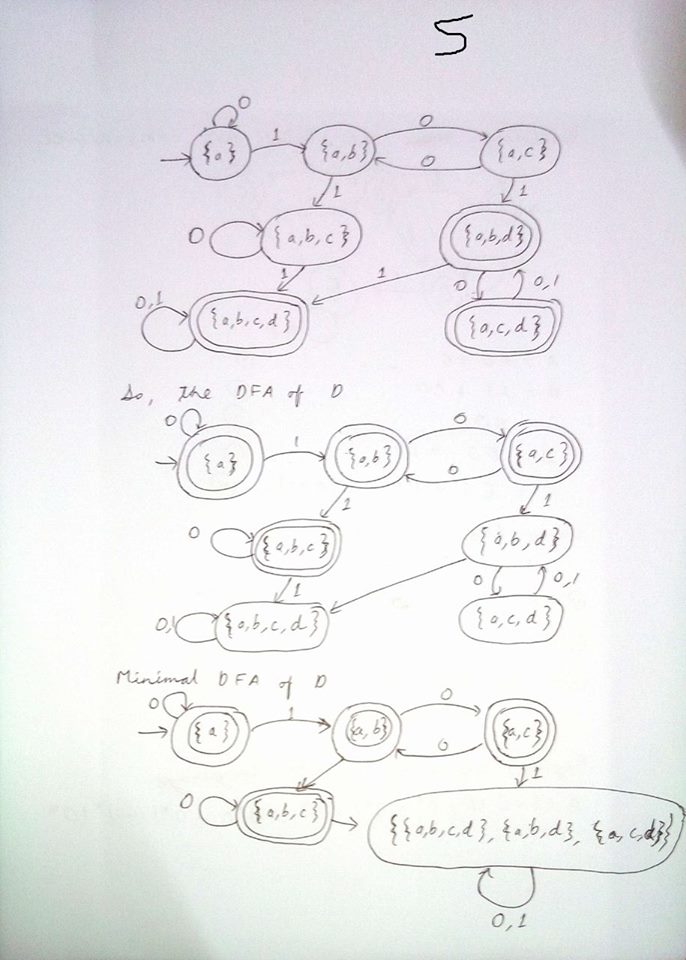 5
0
{a} 1 {a,b} 0 0 {a,c}
1 1
0 {a,b,c} {a,b,d}
1 1 0 0,1
0,1 {a,b,c,d} {a,c,d}
So, the DFA of D
0
{a} 1 {a,b} 0 0 {a,c}
1 1
0 {a,b,c} {a,b,d}
1 0 0,1
0,1 {a,b,c,d} {a,c,d}
Minimal DFA of D
0
{a} 1 {a,b} 0 0 {a,c}
1
0 {a,b,c} {{a,b,c,d}, {a,b,d}, {a,c,d}}
0,1